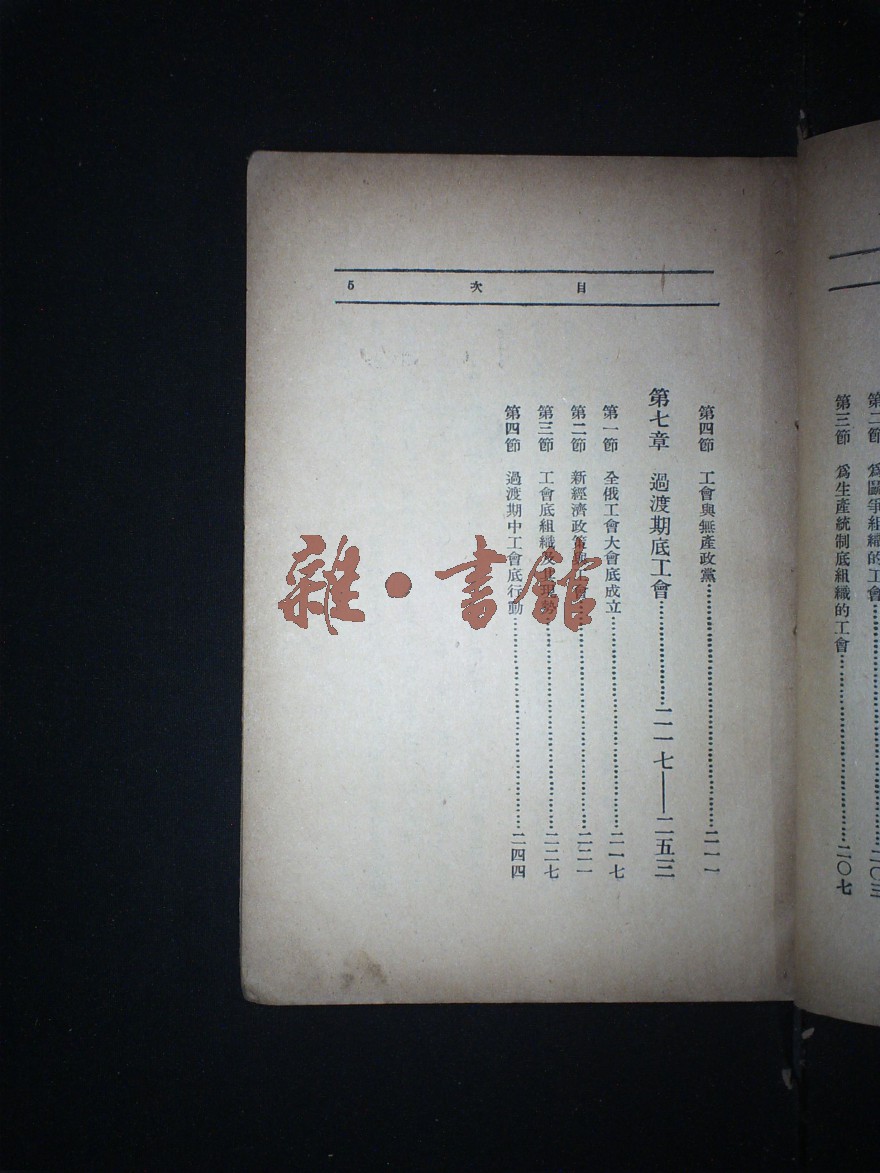 第二節 爲鬭爭組織的工會……二〇三
第三節 爲生產統制底組織的工會……二〇七
目次 5
第四節 工會與無產政黨……二一一
第七章 過渡期底工會……二一七——二五三
第一節 全俄工會大會底成立……二一七
第二節 新經濟政策與工會……二二一
第三節 工會底組織及其現勢……二二七
第四節 過渡期中工會底行動……二四四
雜·書館